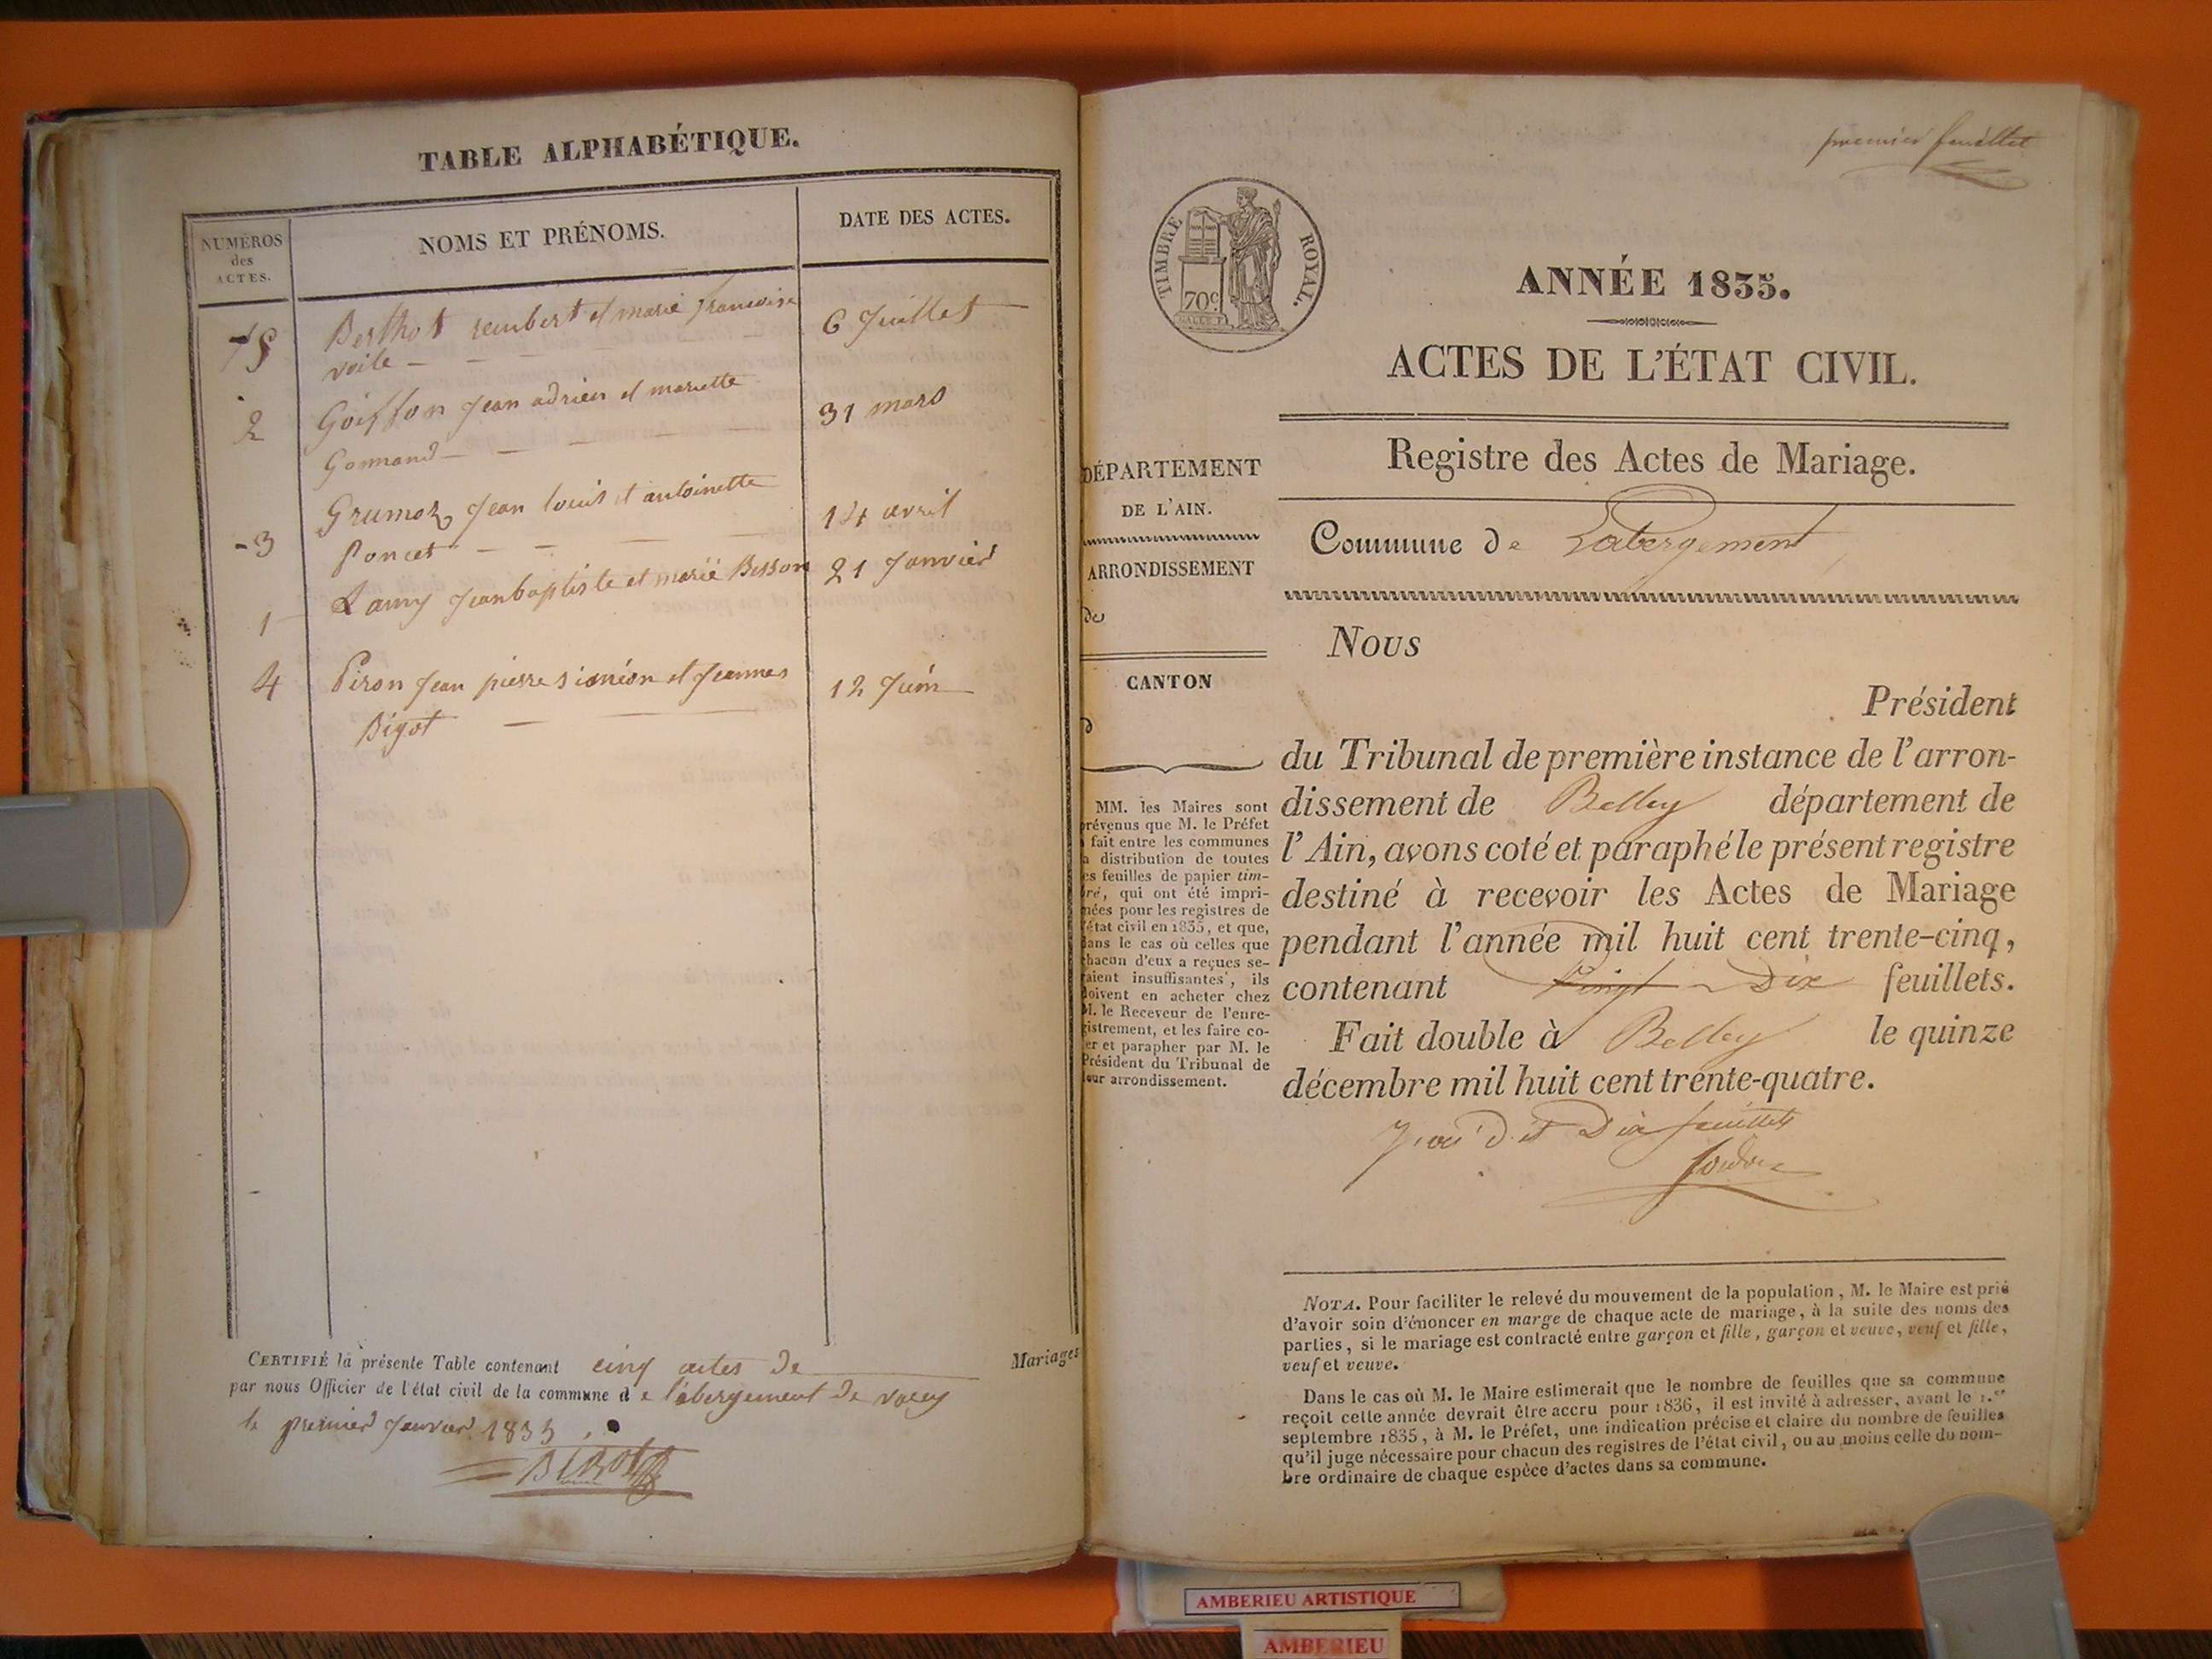 TABLE ALPHABÉTIQUE.
NUMÉROS
des
ACTES.
NOMS ET PRÉNOMS.
DATE DES ACTES.
5 Berthot rambert et marie francoise 6 Juillet
voile
2 Goiffon Jean adrien et mariette 31 mars
Gonnand
3 Grumoz Jean louis et antoinette 14 avril
Poncet
1 Lamy Jean baptiste et marie Besson 21 Janvier
4 Piron Jean pierre siméon et Jeanne 12 Juin
Bigot
CERTIFIÉ la présente Table contenant cinq actes de Mariages
par nous Officier de l'état civil de la commune de l'abergement de varey
le premier Janvier 1835
premier feuillet
TIMBRE ROYAL.
70c
ANNÉE 1835.
ACTES DE L'ÉTAT CIVIL.
Registre des Actes de Mariage.
Commune de Labergement
DÉPARTEMENT
DE L'AIN.
ARRONDISSEMENT
de
CANTON
d
MM. les Maires sont
prévenus que M. le Préfet
a fait entre les communes
la distribution de toutes
les feuilles de papier tim-
bré, qui ont été impri-
mées pour les registres de
l'état civil en 1835, et que,
dans le cas où celles que
chacun d'eux a reçues se-
raient insuffisantes, ils
doivent en acheter chez
M. le Receveur de l'enre-
gistrement, et les faire co-
ter et parapher par M. le
Président du Tribunal de
leur arrondissement.
Nous
Président
du Tribunal de première instance de l'arron-
dissement de Belley département de
l'Ain, avons coté et paraphé le présent registre
destiné à recevoir les Actes de Mariage
pendant l'année mil huit cent trente-cinq,
contenant vingt Dix feuillets.
Fait double à Belley le quinze
décembre mil huit cent trente-quatre.
Dix feuillets
NOTA. Pour faciliter le relevé du mouvement de la population, M. le Maire est prié
d'avoir soin d'énoncer en marge de chaque acte de mariage, à la suite des noms des
parties, si le mariage est contracté entre garçon et fille, garçon et veuve, veuf et fille,
veuf et veuve.
Dans le cas où M. le Maire estimerait que le nombre de feuilles que sa commune
reçoit cette année devrait être accru pour 1836, il est invité à adresser, avant le 1.er
septembre 1835, à M. le Préfet, une indication précise et claire du nombre de feuilles
qu'il juge nécessaire pour chacun des registres de l'état civil, ou au moins celle du nom-
bre ordinaire de chaque espèce d'actes dans sa commune.
AMBERIEU ARTISTIQUE
AMBERIEU